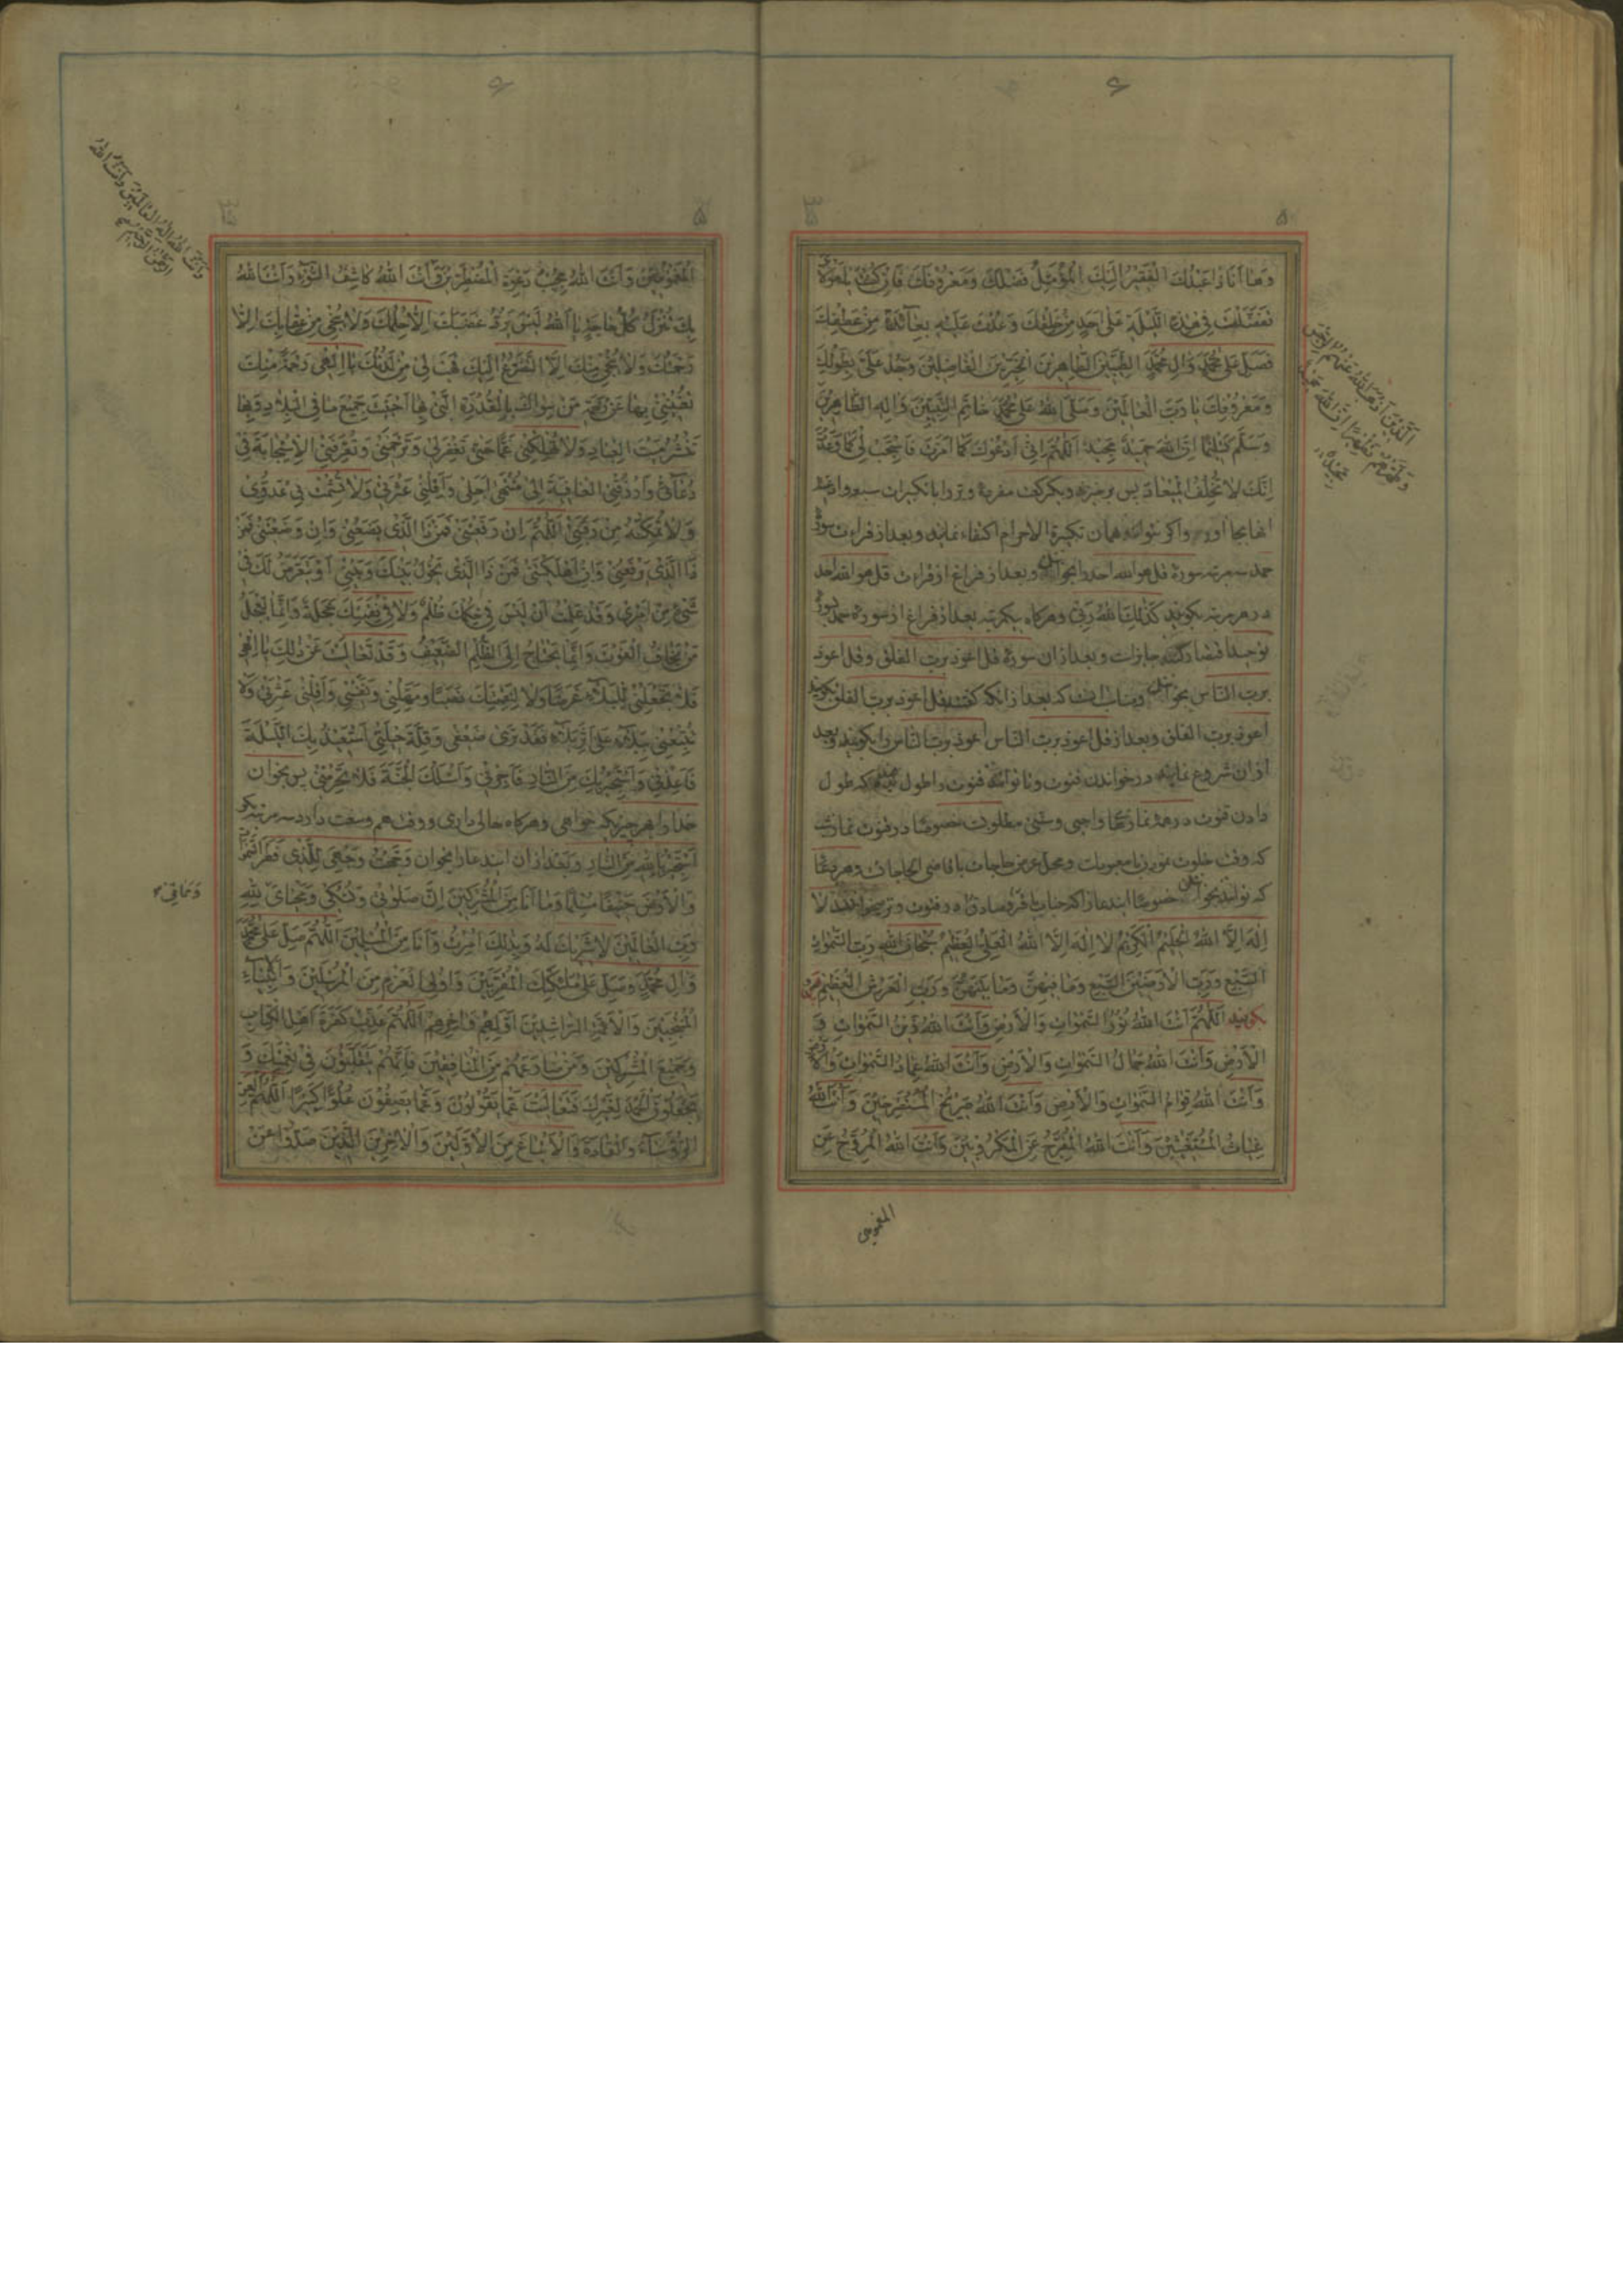 ۶
۵
وها انا ذا عبدك الفقير اليك المؤمل فضلك ومعروفك فان كنت يا مولاى
تفضلت فى هذه الليلة على احد من خلقك وعدت عليه بعائدة من عطفك
فصل على محمد وال محمد الطيبين الطاهرين الخيرين الفاضلين وجد على بطولك
ومعروفك يا رب العالمين وصلى الله على محمد خاتم النبيين واله الطاهرين
وسلم تسليما ان الله حميد مجيد اللهم انى ادعوك كما امرت فاستجب لى كما وعدت
انك لا تخلف الميعاد پس برخيز و يكركعت مفردة وتر را با تكبيرات
بجا اور واكر نتوانند همان تكبيرة الاحرام اكتفاء نمايند وبعد از قراءت سورة
حمد سه مرتبه سورة قل هو الله احد را بخوان وبعد از فراغ از قراءت قل هو الله احد
در هر مرتبه بكويند كذلك الله ربى وهركاه يكمرتبه بعد از فراغ از سورة حمد سورة
توحيد جايز است وبعد از ان سورة قل اعوذ برب الفلق وقل اعوذ
برب الناس بخوان كه بعد از انكه كفت قل اعوذ برب الفلق بكويند
اعوذ برب الفلق وبعد از قل اعوذ برب الناس اعوذ برب الناس را بكويند وبعد
از ان شروع نمايند در خواندن قنوت وتا توانند قنوت را طول دهند كه طول
دادن قنوت در همه نمازها واجبى وسنتى مطلوبست خصوصا در قنوت نماز وتر
كه وقت خلوت ومحل عرض حاجات با قاضى الحاجات وهر دعا
كه توانند بخوان خصوصا اين دعا را كه جناب باقر و صادق در قنوت وتر ميخواندند لا
اله الا الله الحليم الكريم لا اله الا الله العلى العظيم سبحان الله رب السموات
السبع ورب الارضين السبع وما فيهن وما بينهن ورب العرش العظيم
بكويند اللهم انت الله نور السموات والارض وانت الله زين السموات و
الارض وانت الله جمال السموات والارض وانت الله عماد السموات والارض
وانت الله قوام السموات والارض وانت الله صريخ المستصرخين وانت الله
غياث المستغيثين وانت الله المفرج عن المكروبين وانت الله المروح عن
المغمومين
الذين اذهب الله عنهم الرجس
وطهرهم تطهيرا ان الله حميد
مجيد
۶
۵
المغمومين وانت الله مجيب دعوة المضطرين وانت الله كاشف السوء وانت الله
بك تنزل كل حاجة يا الله ليس يرد غضبك الا حلمك ولا ينجى من عقابك الا
رحمتك ولا ينجى منك الا التضرع اليك فهب لى من لدنك يا الهى رحمة منك
تغنينى بها عن رحمة من سواك بالقدرة التى بها احييت جميع ما فى البلاد وبها
تنشر ميت العباد ولا تهلكنى غما حتى تغفر لى وترحمنى وتعرفنى الاستجابة فى
دعائى وارزقنى العافية الى منتهى اجلى واقلنى عثرتى ولا تشمت بى عدوى
ولا تمكنه من رقبتى اللهم ان رفعتنى فمن ذا الذى يضعنى وان وضعتنى فمن
ذا الذى يرفعنى وان اهلكتنى فمن ذا الذى يحول بينك وبينى او يتعرض لك فى
شىء من امرى وقد علمت ان ليس فى حكمك ظلم ولا فى نقمتك عجلة وانما يعجل
من يخاف الفوت وانما يحتاج الى الظلم الضعيف وقد تعاليت عن ذلك يا الهى
فلا تجعلنى للبلاء غرضا ولا لنقمتك نصبا ومهلنى ونفسنى واقلنى عثرتى ولا
تتبعنى ببلاء على اثر بلاء فقد ترى ضعفى وقلة حيلتى استعيذ بك الليلة
فاعذنى واستجير بك من النار فاجرنى واسئلك الجنة فلا تحرمنى پس بخوان
خدا را بهر چيزيكه خواهى وهركاه حالى دارى ووقت هم وسعت دارد سه مرتبه بكو
استجير بالله من النار وبعد از ان اين دعا را بخوان وجهت وجهى للذى فطر السموات
والارض حنيفا مسلما وما انا من المشركين ان صلوتى ونسكى ومحياى لله
رب العالمين لا شريك له وبذلك امرت وانا من المسلمين اللهم صل على محمد
وال محمد وصل على ملئكتك المقربين واولى العزم من المرسلين والانبياء
المنتجبين والائمة الراشدين اولهم واخرهم اللهم عذب كفرة اهل الكتاب
وجميع المشركين ومن ضارعهم من المنافقين فانهم يتقلبون فى نعمتك و
يجعلون الحمد لغيرك فتعاليت عما يقولون وعما يصفون علوا كبيرا اللهم العن
الرؤساء والقادة والاتباع من الاولين والاخرين الذين صدوا عن
وانت الله اله العالمين وانت الله
الرحمن الرحيم
ومماتى